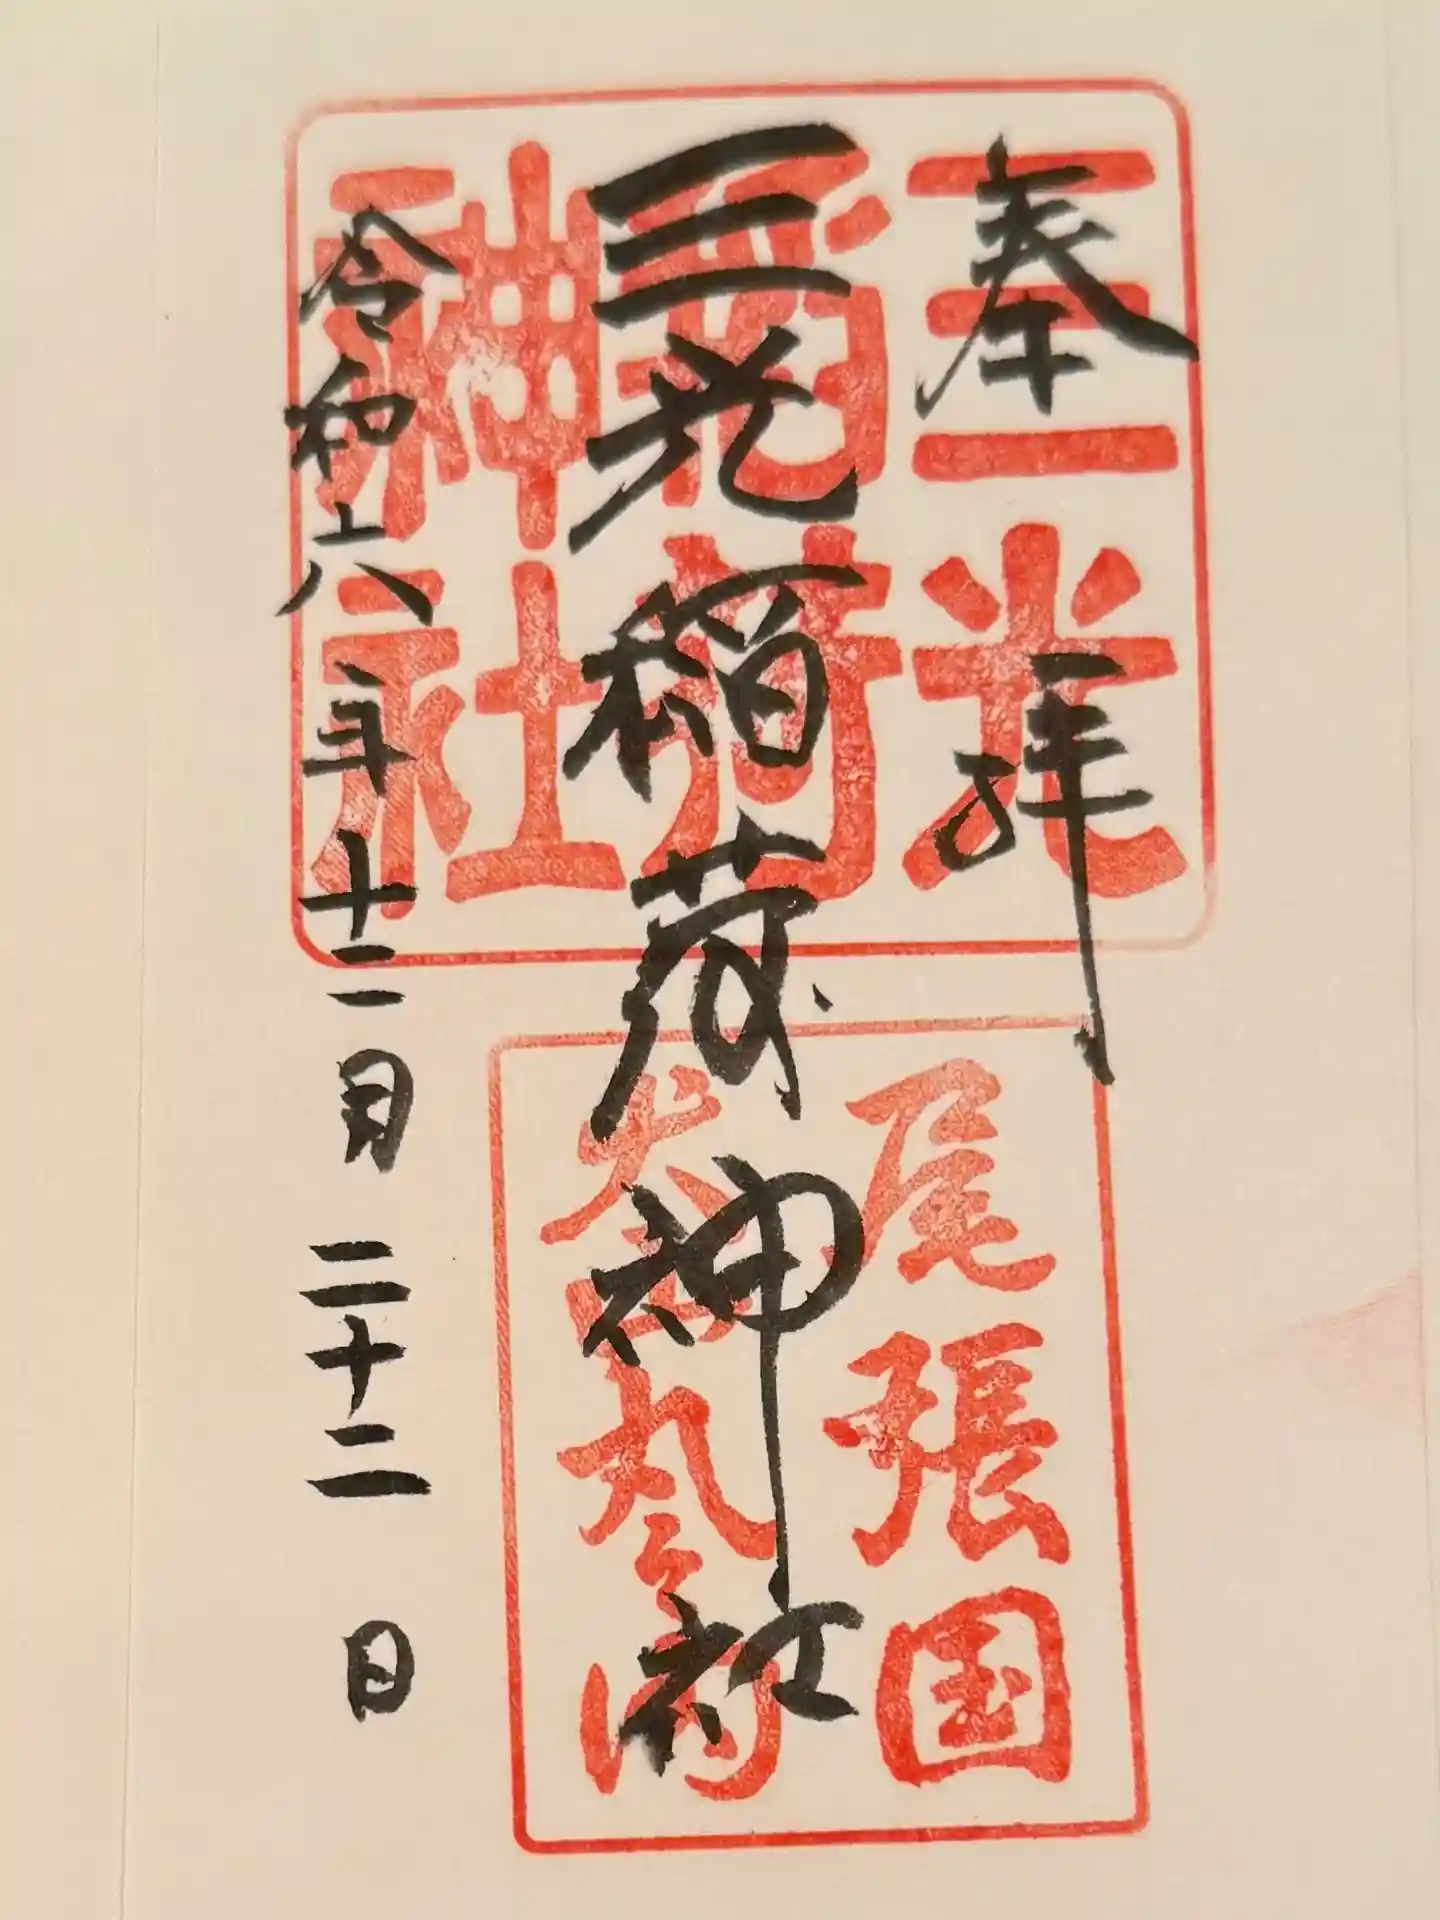 奉拝
三光稲荷神社
令和六年十二月二十二日
三光
稲荷
神社
尾張国
犬山丸之内